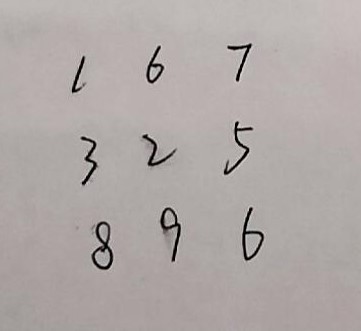 1 6 7
3 2 5
8 9 6